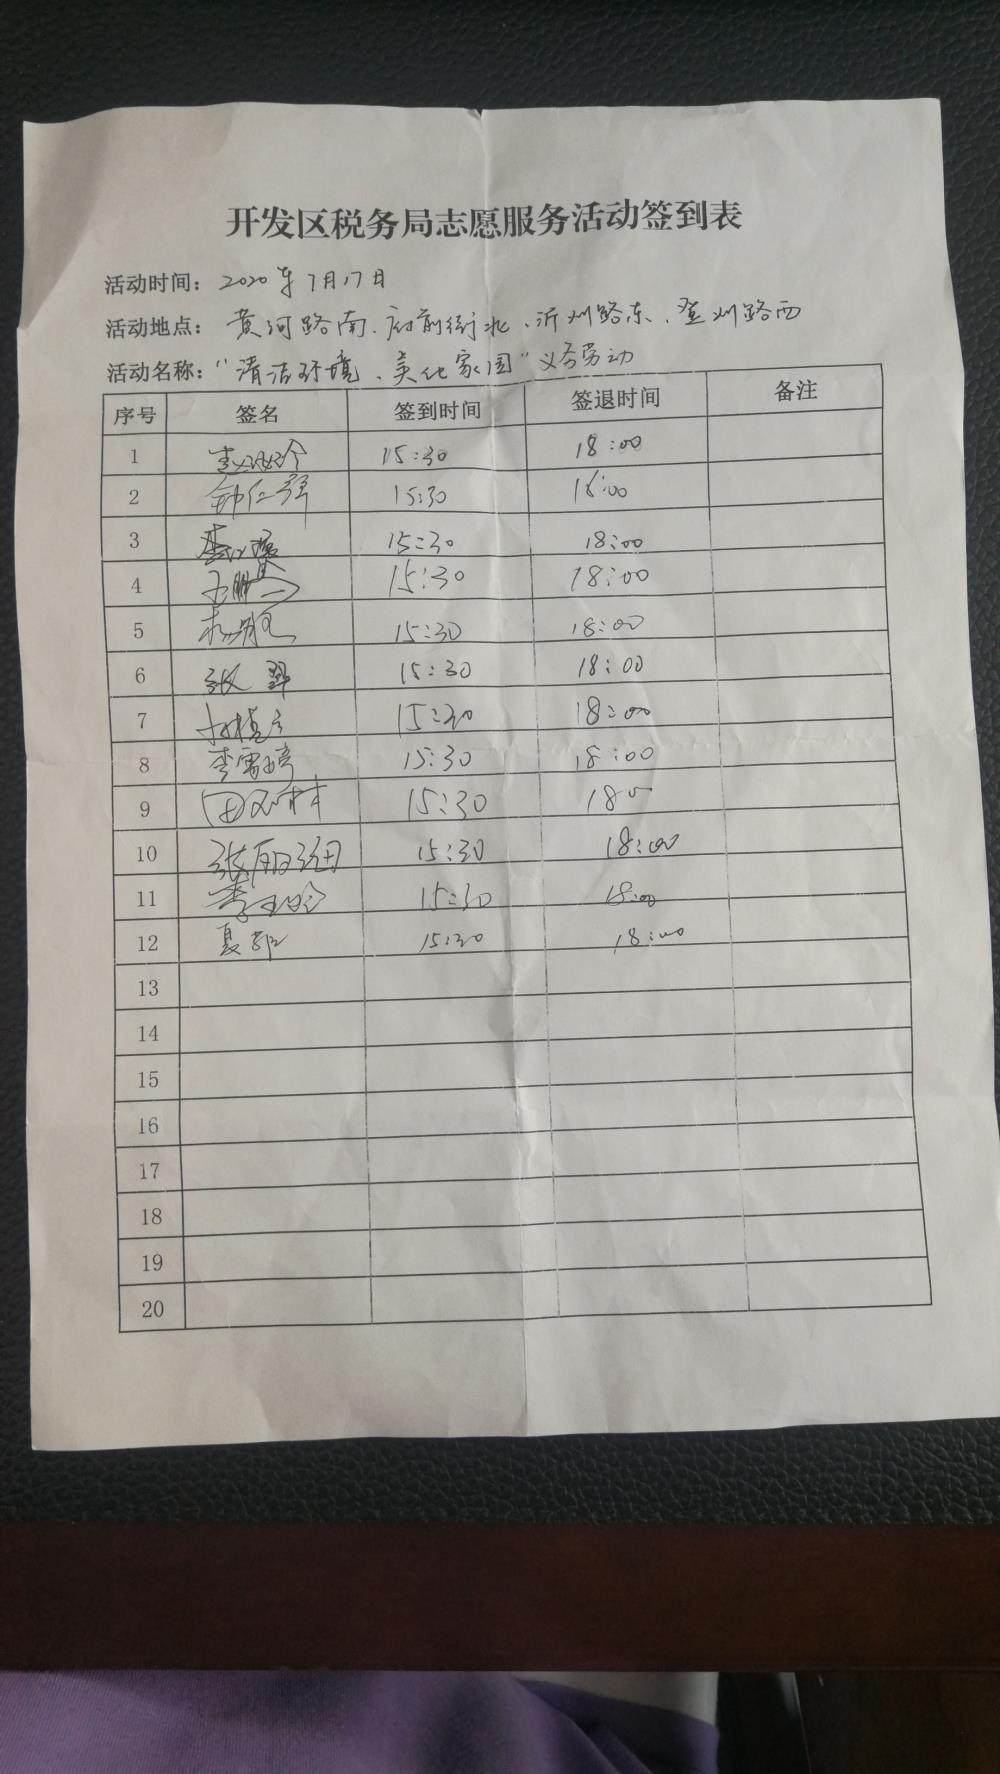 开发区税务局志愿服务活动签到表
活动时间：2020年7月17日
活动地点：黄河路南、府前街北、沂州路东、登州路西
活动名称："清洁环境、美化家园"义务劳动
序号 签名 签到时间 签退时间 备注
1 15:30 18:00
2 钟仁泽 15:30 18:00
3 15:30 18:00
4 15:30 18:00
5 15:30 18:00
6 张翠 15:30 18:00
7 15:30 18:00
8 李雪婷 15:30 18:00
9 15:30 18:00
10 张丽细 15:30 18:00
11 李 15:30 18:00
12 夏 15:30 18:00
13
14
15
16
17
18
19
20